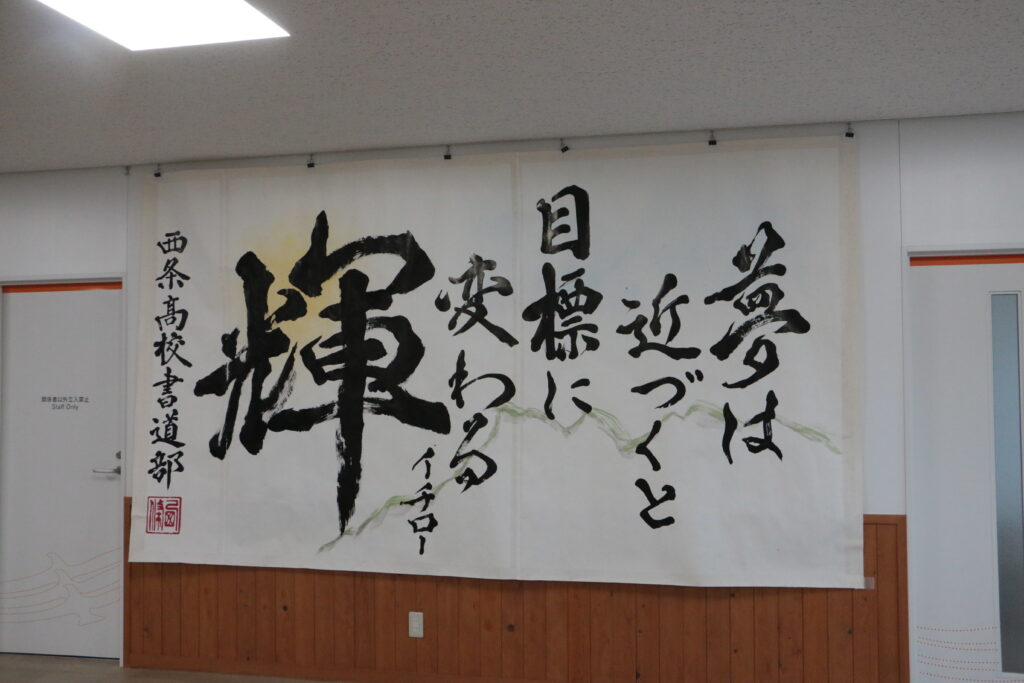 夢は
近づくと
目標に
変わる
イチロー
輝
西条高校書道部
関係者以外立入禁止
Staff Only